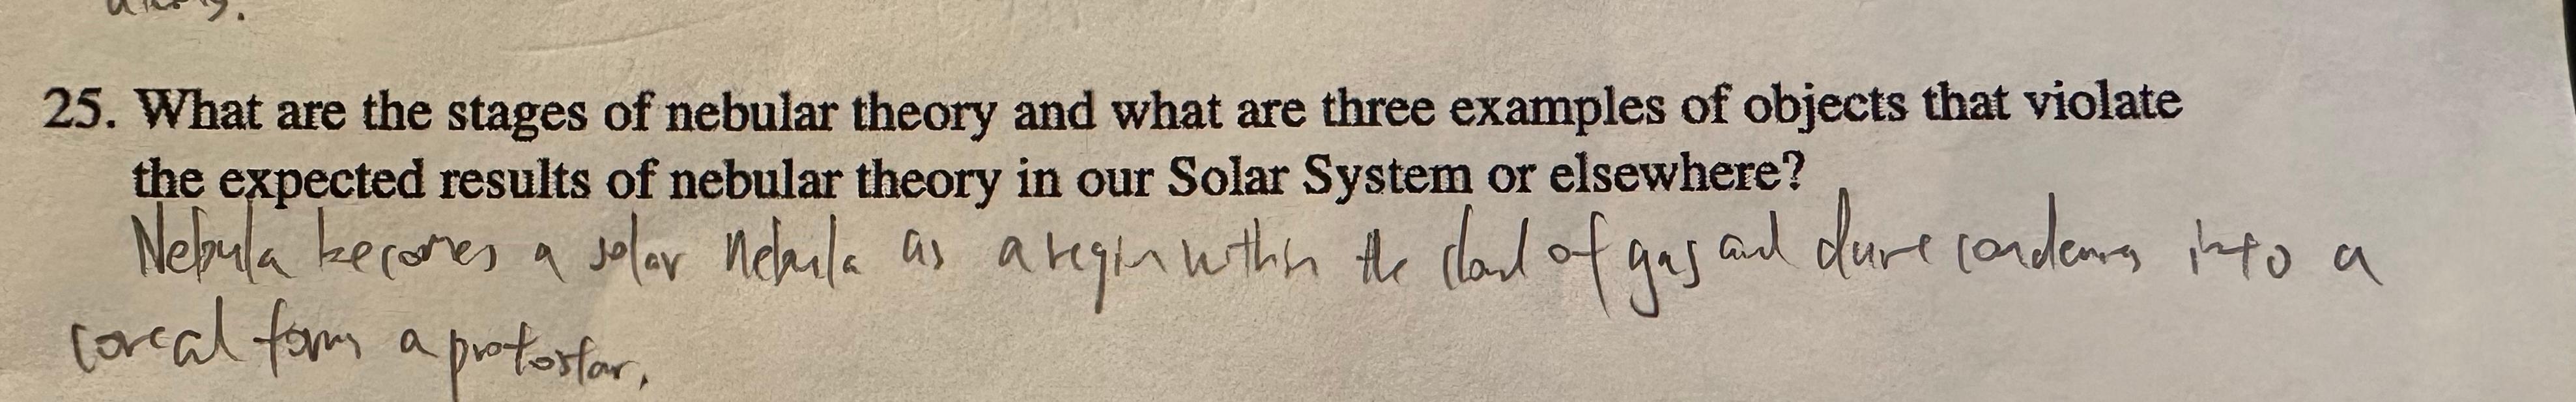 25. What are the stages of nebular theory and what are three examples of objects that violate
the expected results of nebular theory in our Solar System or elsewhere?
Nebula becomes a solar Nebula as a region within the cloud of gas and condenses into a
core and forms a protostar.